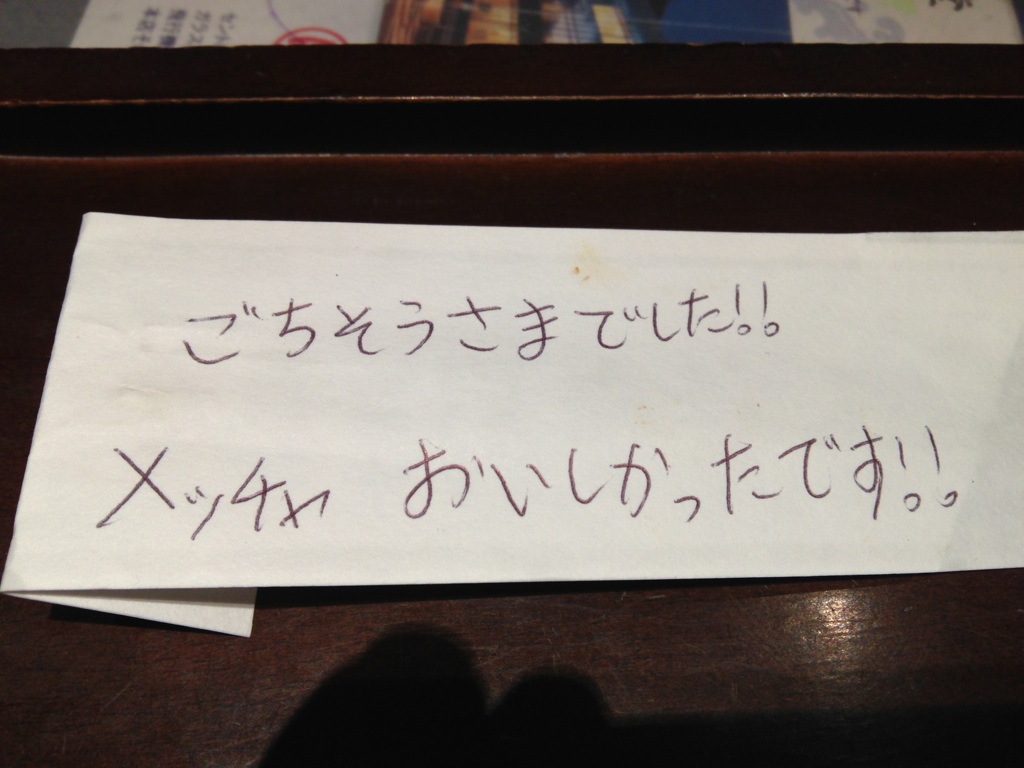 ごちそうさまでした!!
メッチャ おいしかったです!!